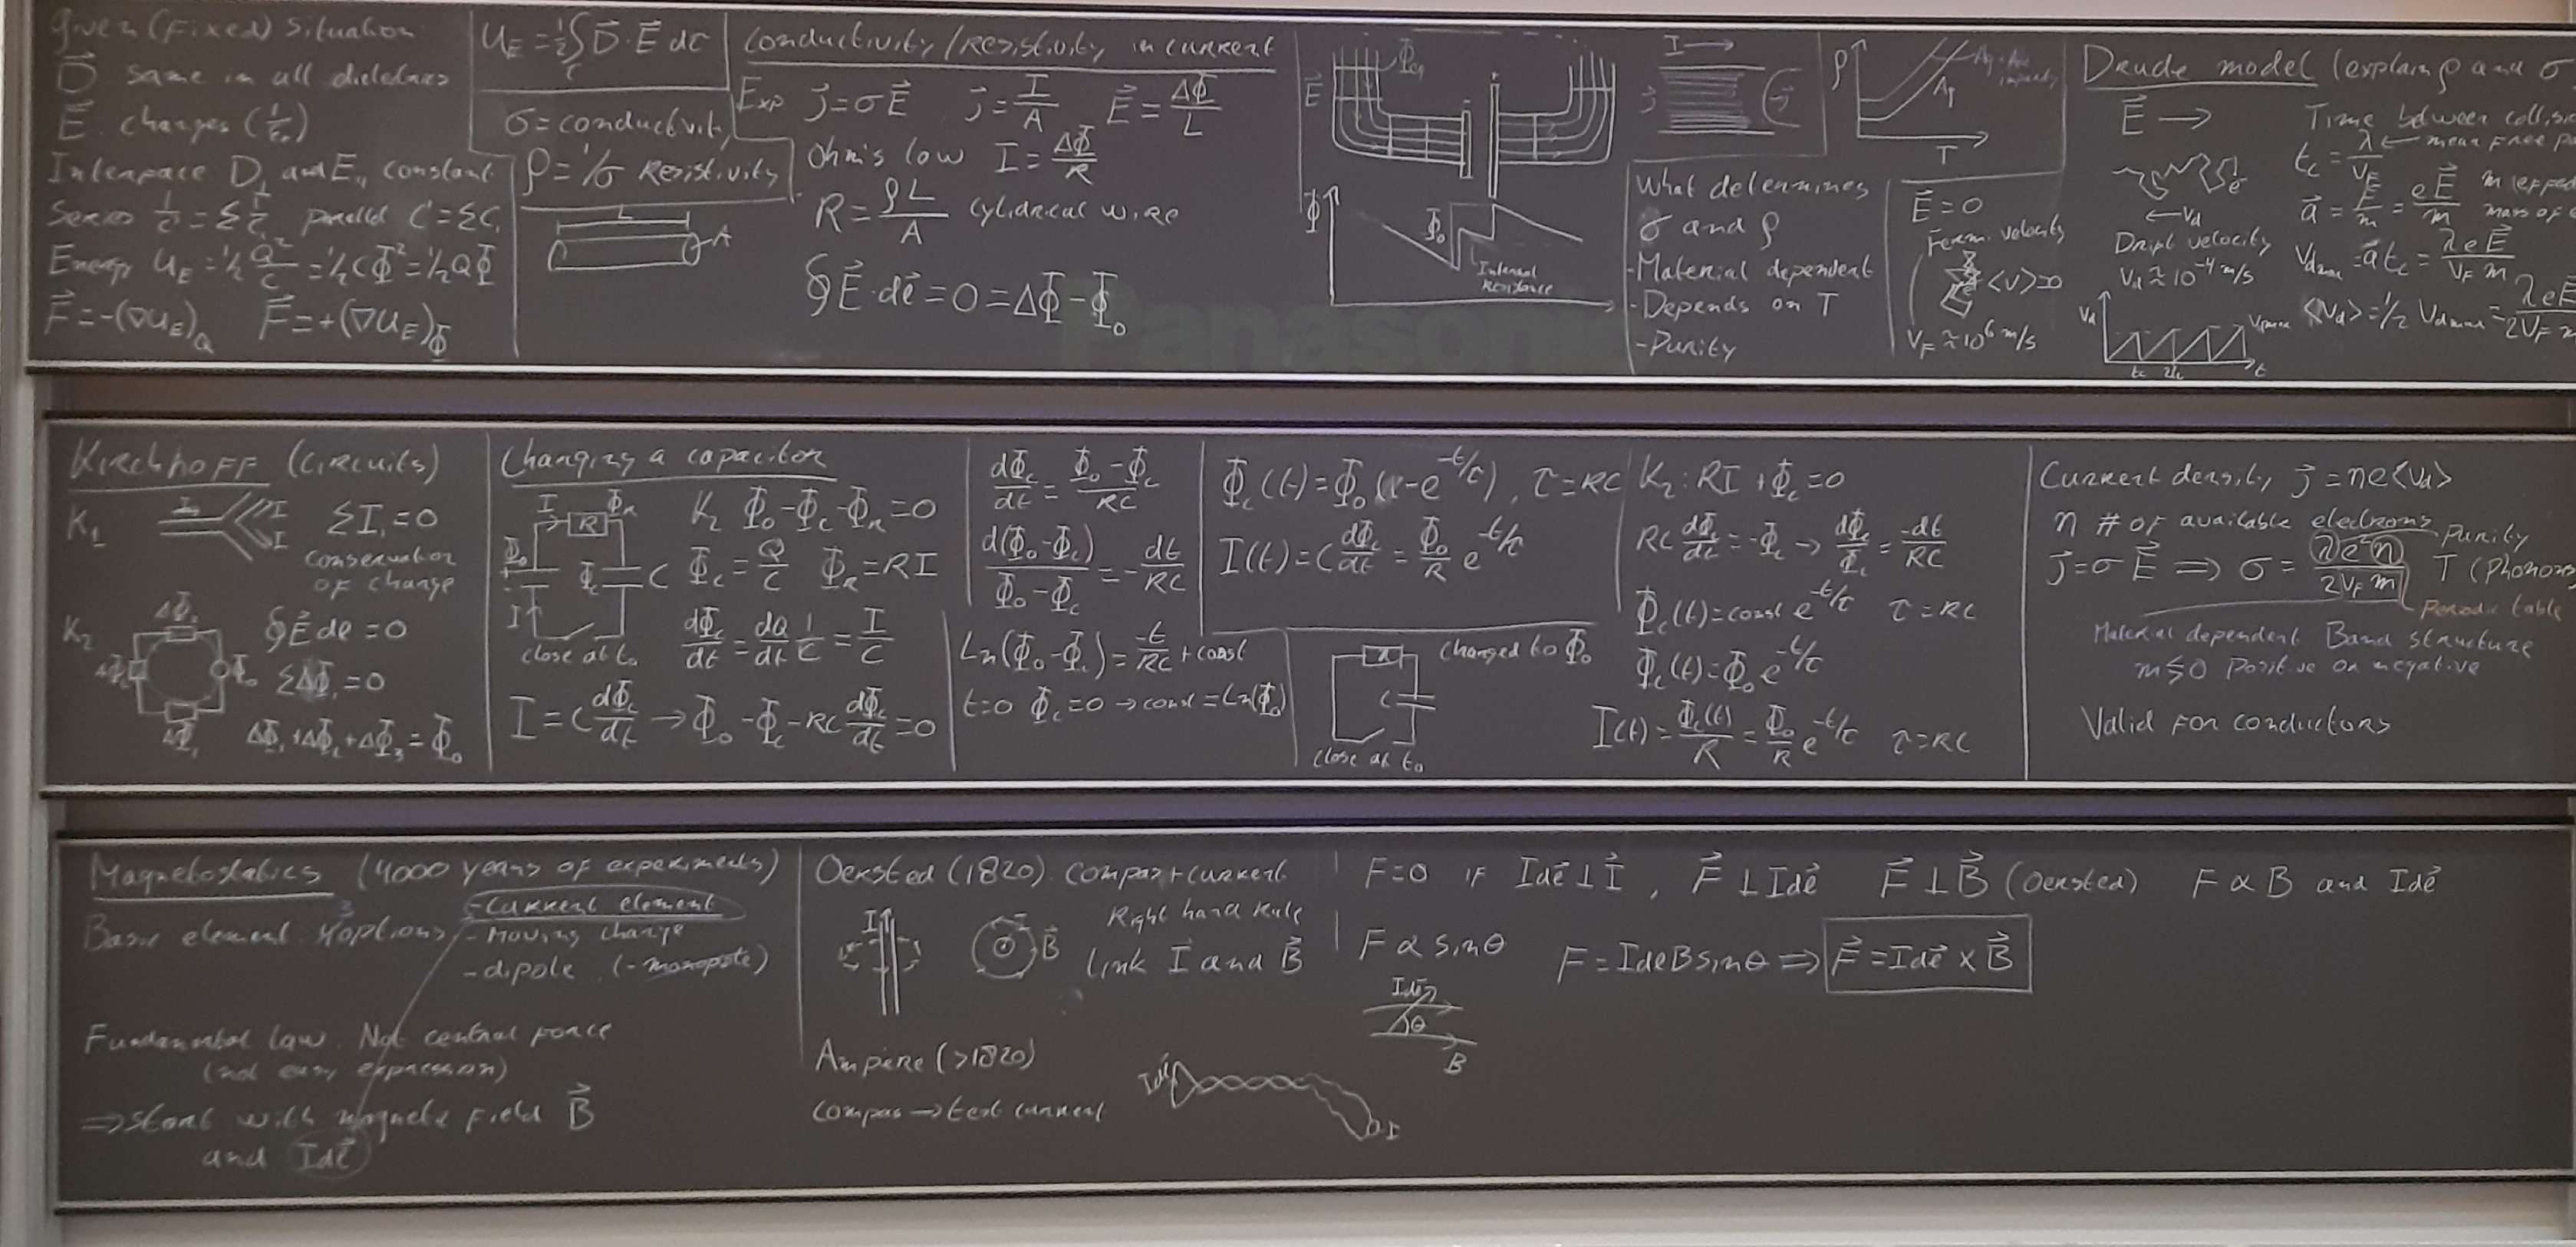 given (Fixed) situation
D⃗ same in all dielectrics
E⃗ changes (1/εr)
Interface D⊥ and E,, constant
Series 1/C = Σ 1/Ci parallel C = ΣCi
Energy U_E = ½ Q²/C = ½CΦ² = ½QΦ
F⃗ = -(∇U_E)_Q F⃗ = +(∇U_E)_Φ
U_E = ½∫ D⃗·E⃗ dτ
σ = conductivity
ρ = 1/σ Resistivity
L
A
Conductivity/Resistivity in current
Exp j⃗ = σE⃗ j⃗ = I/A E⃗ = ΔΦ/L
Ohm's low I = ΔΦ/R
R = ρL/A cylidrical wire
∮E⃗·dl⃗ = 0 = ΔΦ - Φ₀
Panasonic
E⃗
Φeq
Φ
Φ₀
Internal
Resistance
I →
What determines
σ and ρ
-Material dependent
-Depends on T
-Purity
ρ
Ag
T
E⃗ = 0
Fermi velocity
<v> = 0
V_F ≈ 10⁶ m/s
Drude model (explain ρ and σ
E⃗ →
e⁻
← Vd
Drift velocity
Vd ≈ 10⁻⁴ m/s
Vd
Vdmax
tc 2tc t
Time between collisi
tc = λ/V_F ← mean free pa
a⃗ = F⃗/m = eE⃗/m m (effect
mass of
Vdmax = a⃗tc = λeE⃗/V_F m
<Vd> = ½ Vdmax = λeE/2V_F m
Kirchhoff (circuits)
K₁ I I I ΣIi = 0
conservation
of charge
K₂ ∮E⃗dl = 0
ΣΔΦi = 0
ΔΦ₃
ΔΦ₂ Φ₀
ΔΦ₁ ΔΦ₁+ΔΦ₂+ΔΦ₃ = Φ₀
Charging a capacitor
I Φ_R
R
Φ₀
Φc C
I
close at t₀
K₂ Φ₀ - Φc - Φ_R = 0
Φc = Q/C Φ_R = RI
dΦc/dt = dQ/dt 1/C = I/C
I = C dΦc/dt → Φ₀ - Φc - RC dΦc/dt = 0
dΦc/dt = (Φ₀-Φc)/RC
d(Φ₀-Φc)/(Φ₀-Φc) = -dt/RC
Ln(Φ₀-Φc) = -t/RC + const
t=0 Φc=0 → const = Ln(Φ₀)
Φc(t) = Φ₀(1-e^(-t/τ)), τ = RC
I(t) = C dΦc/dt = Φ₀/R e^(-t/τ)
charged to Φ₀
R
C
close at t₀
K₂: RI + Φc = 0
RC dΦc/dt = -Φc → dΦc/Φc = -dt/RC
Φc(t) = const e^(-t/τ) τ = RC
Φc(t) = Φ₀ e^(-t/τ)
I(t) = Φc(t)/R = Φ₀/R e^(-t/τ) τ = RC
Current density j⃗ = ne<Vd>
n # of available electrons
purity
j⃗ = σE⃗ ⟹ σ = λe²n/2V_F m T (Phonons
Periodic table
Material dependent Band structure
m≶0 Positive or negative
Valid for conductors
Magnetostatics (4000 years of experiments)
Basic element 3 options
-Current element
-Moving charge
-dipole (-monopole)
Fundamental law. Not central force
(not easy expression)
⟹ start with magnetic field B⃗
and Idl⃗
Oersted (1820). Compas + current
I
I B⃗
Right hand Rule
link I⃗ and B⃗
Ampère (>1820)
Compas → test current
Idl⃗
I
F=0 if Idl⃗ ⊥ I⃗, F⃗ ⊥ Idl⃗ F⃗ ⊥ B⃗ (Oersted) F ∝ B and Idl⃗
F ∝ sinθ F = IdlBsinθ ⟹ F⃗ = Idl⃗ × B⃗
Idl⃗
θ
B